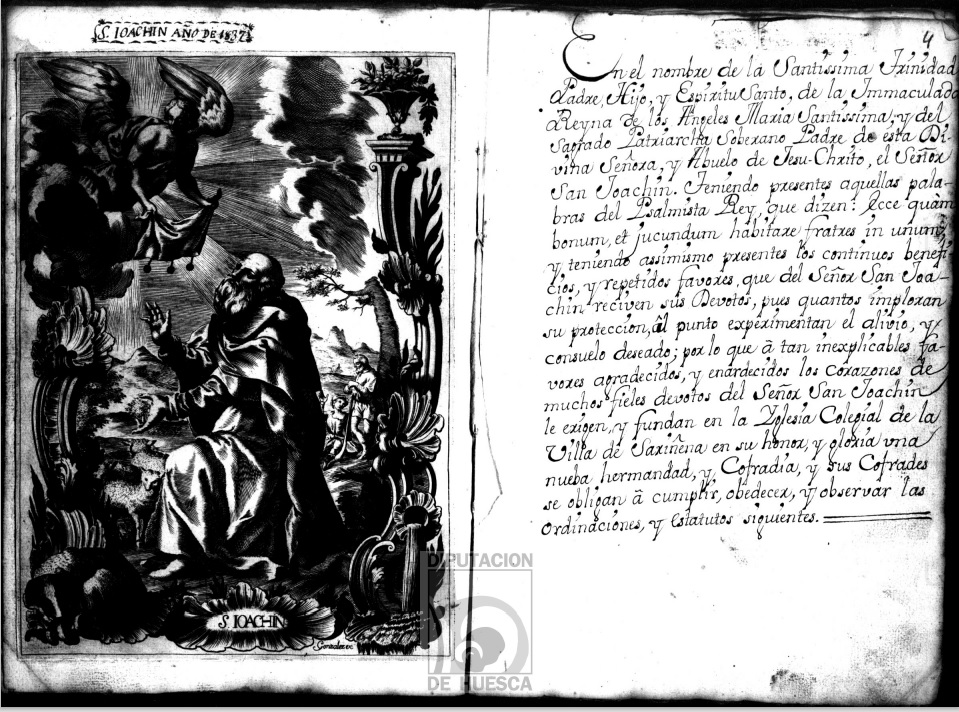 S. IOACHIN AÑO DE 1837
S. IOACHIN
4
En el nombre de la Santissima Trinidad
Padre, Hijo, y Espiritu Santo, de la Immaculada
Reyna de los Angeles Maria Santissima, y del
Sagrado Patriarcha Soberano Padre de esta Di-
vina Señora, y Abuelo de Jesu-Chrito, el Señor
San Joachin. Teniendo presentes aquellas pala-
bras del Psalmista Rey, que dizen: Ecce quàm
bonum, et jucundum habitare fratres in unum,
y teniendo assimismo presentes los continuos benefi-
cios, y repetidos favores, que del Señor San Joa-
chin reciven sus Devotos, pues quantos imploran
su proteccion, al punto experimentan el alivio, y
consuelo deseado; por lo que â tan inexplicables fa-
vores agradecidos, y enardecidos los corazones de
muchos fieles devotos del Señor San Joachin
le erigen, y fundan en la Yglesia Colegial de la
Villa de Sariñena en su honor, y gloria vna
nueba hermandad, y Cofradia, y sus Cofrades
se obligan â cumplir, obedecer, y observar las
Ordinaciones, y Estatutos siguientes.
DIPUTACION
DE HUESCA